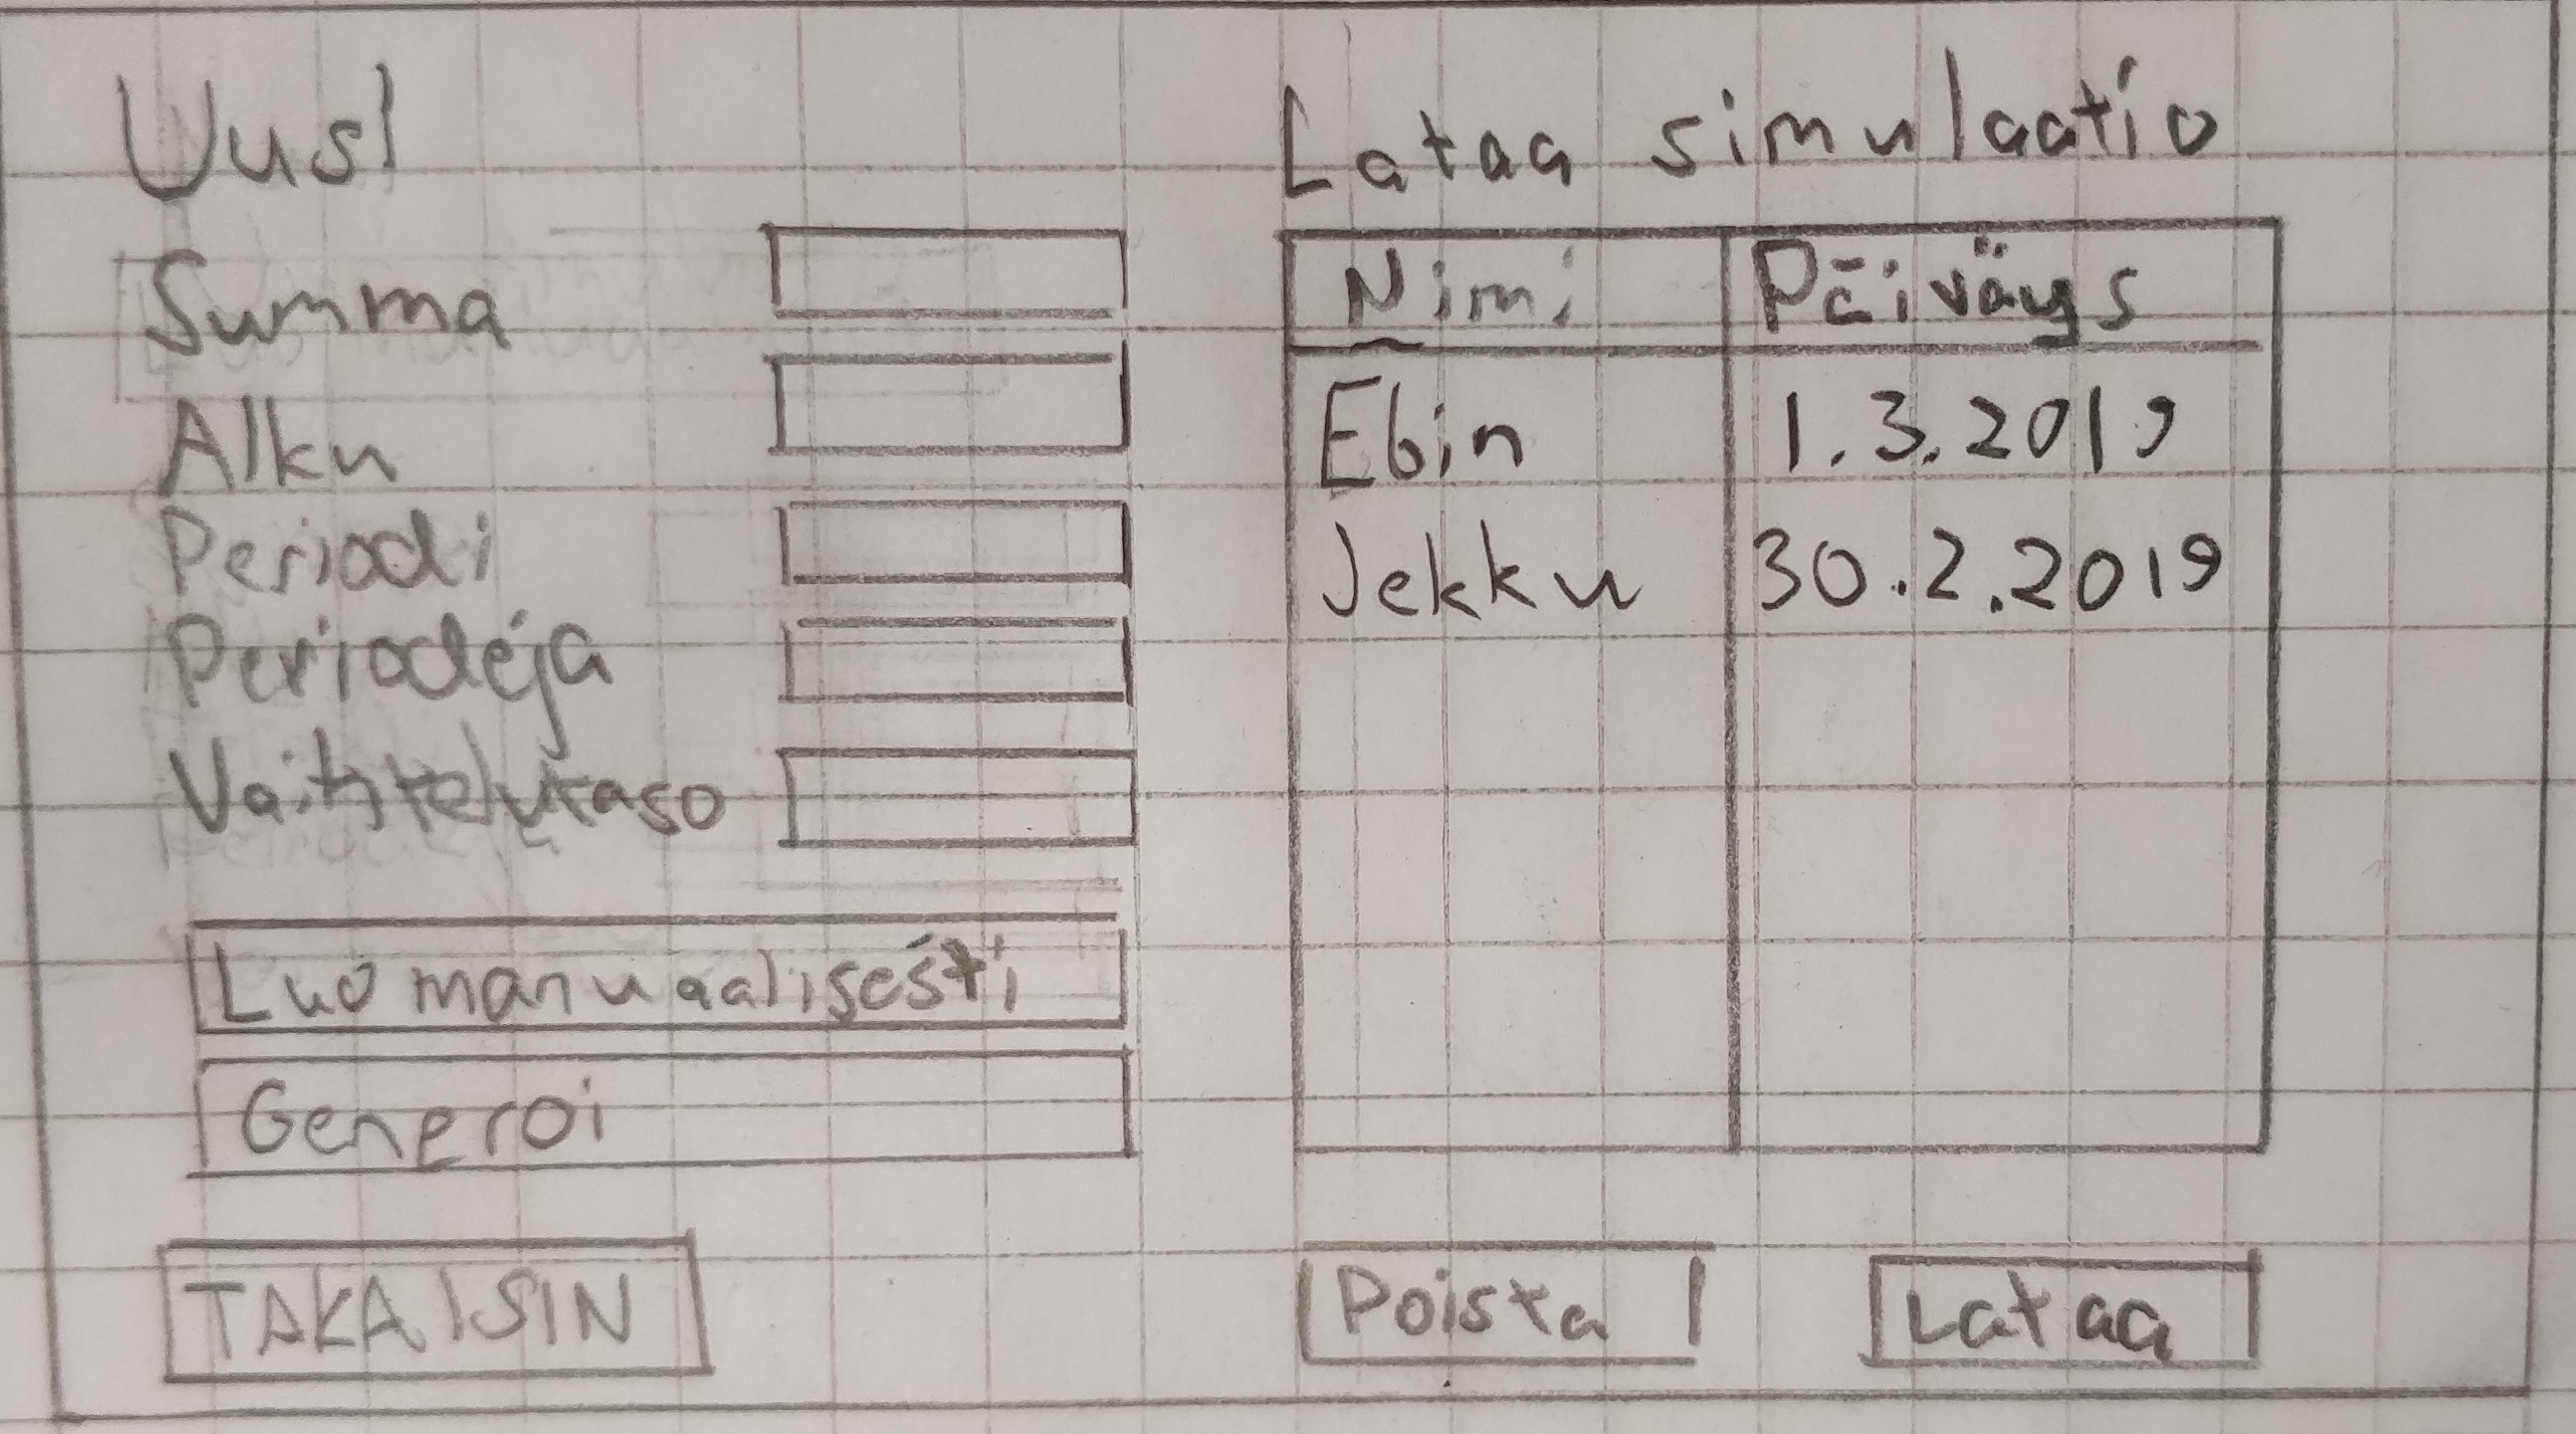 Uusi
Summa
Alku
Periodi
Periodeja
Vaihtelutaso
Luo manuaalisesti
Generoi
TAKAISIN
Lataa simulaatio
Nimi Päiväys
Ebin 1.3.2019
Jekku 30.2.2019
Poista
Lataa